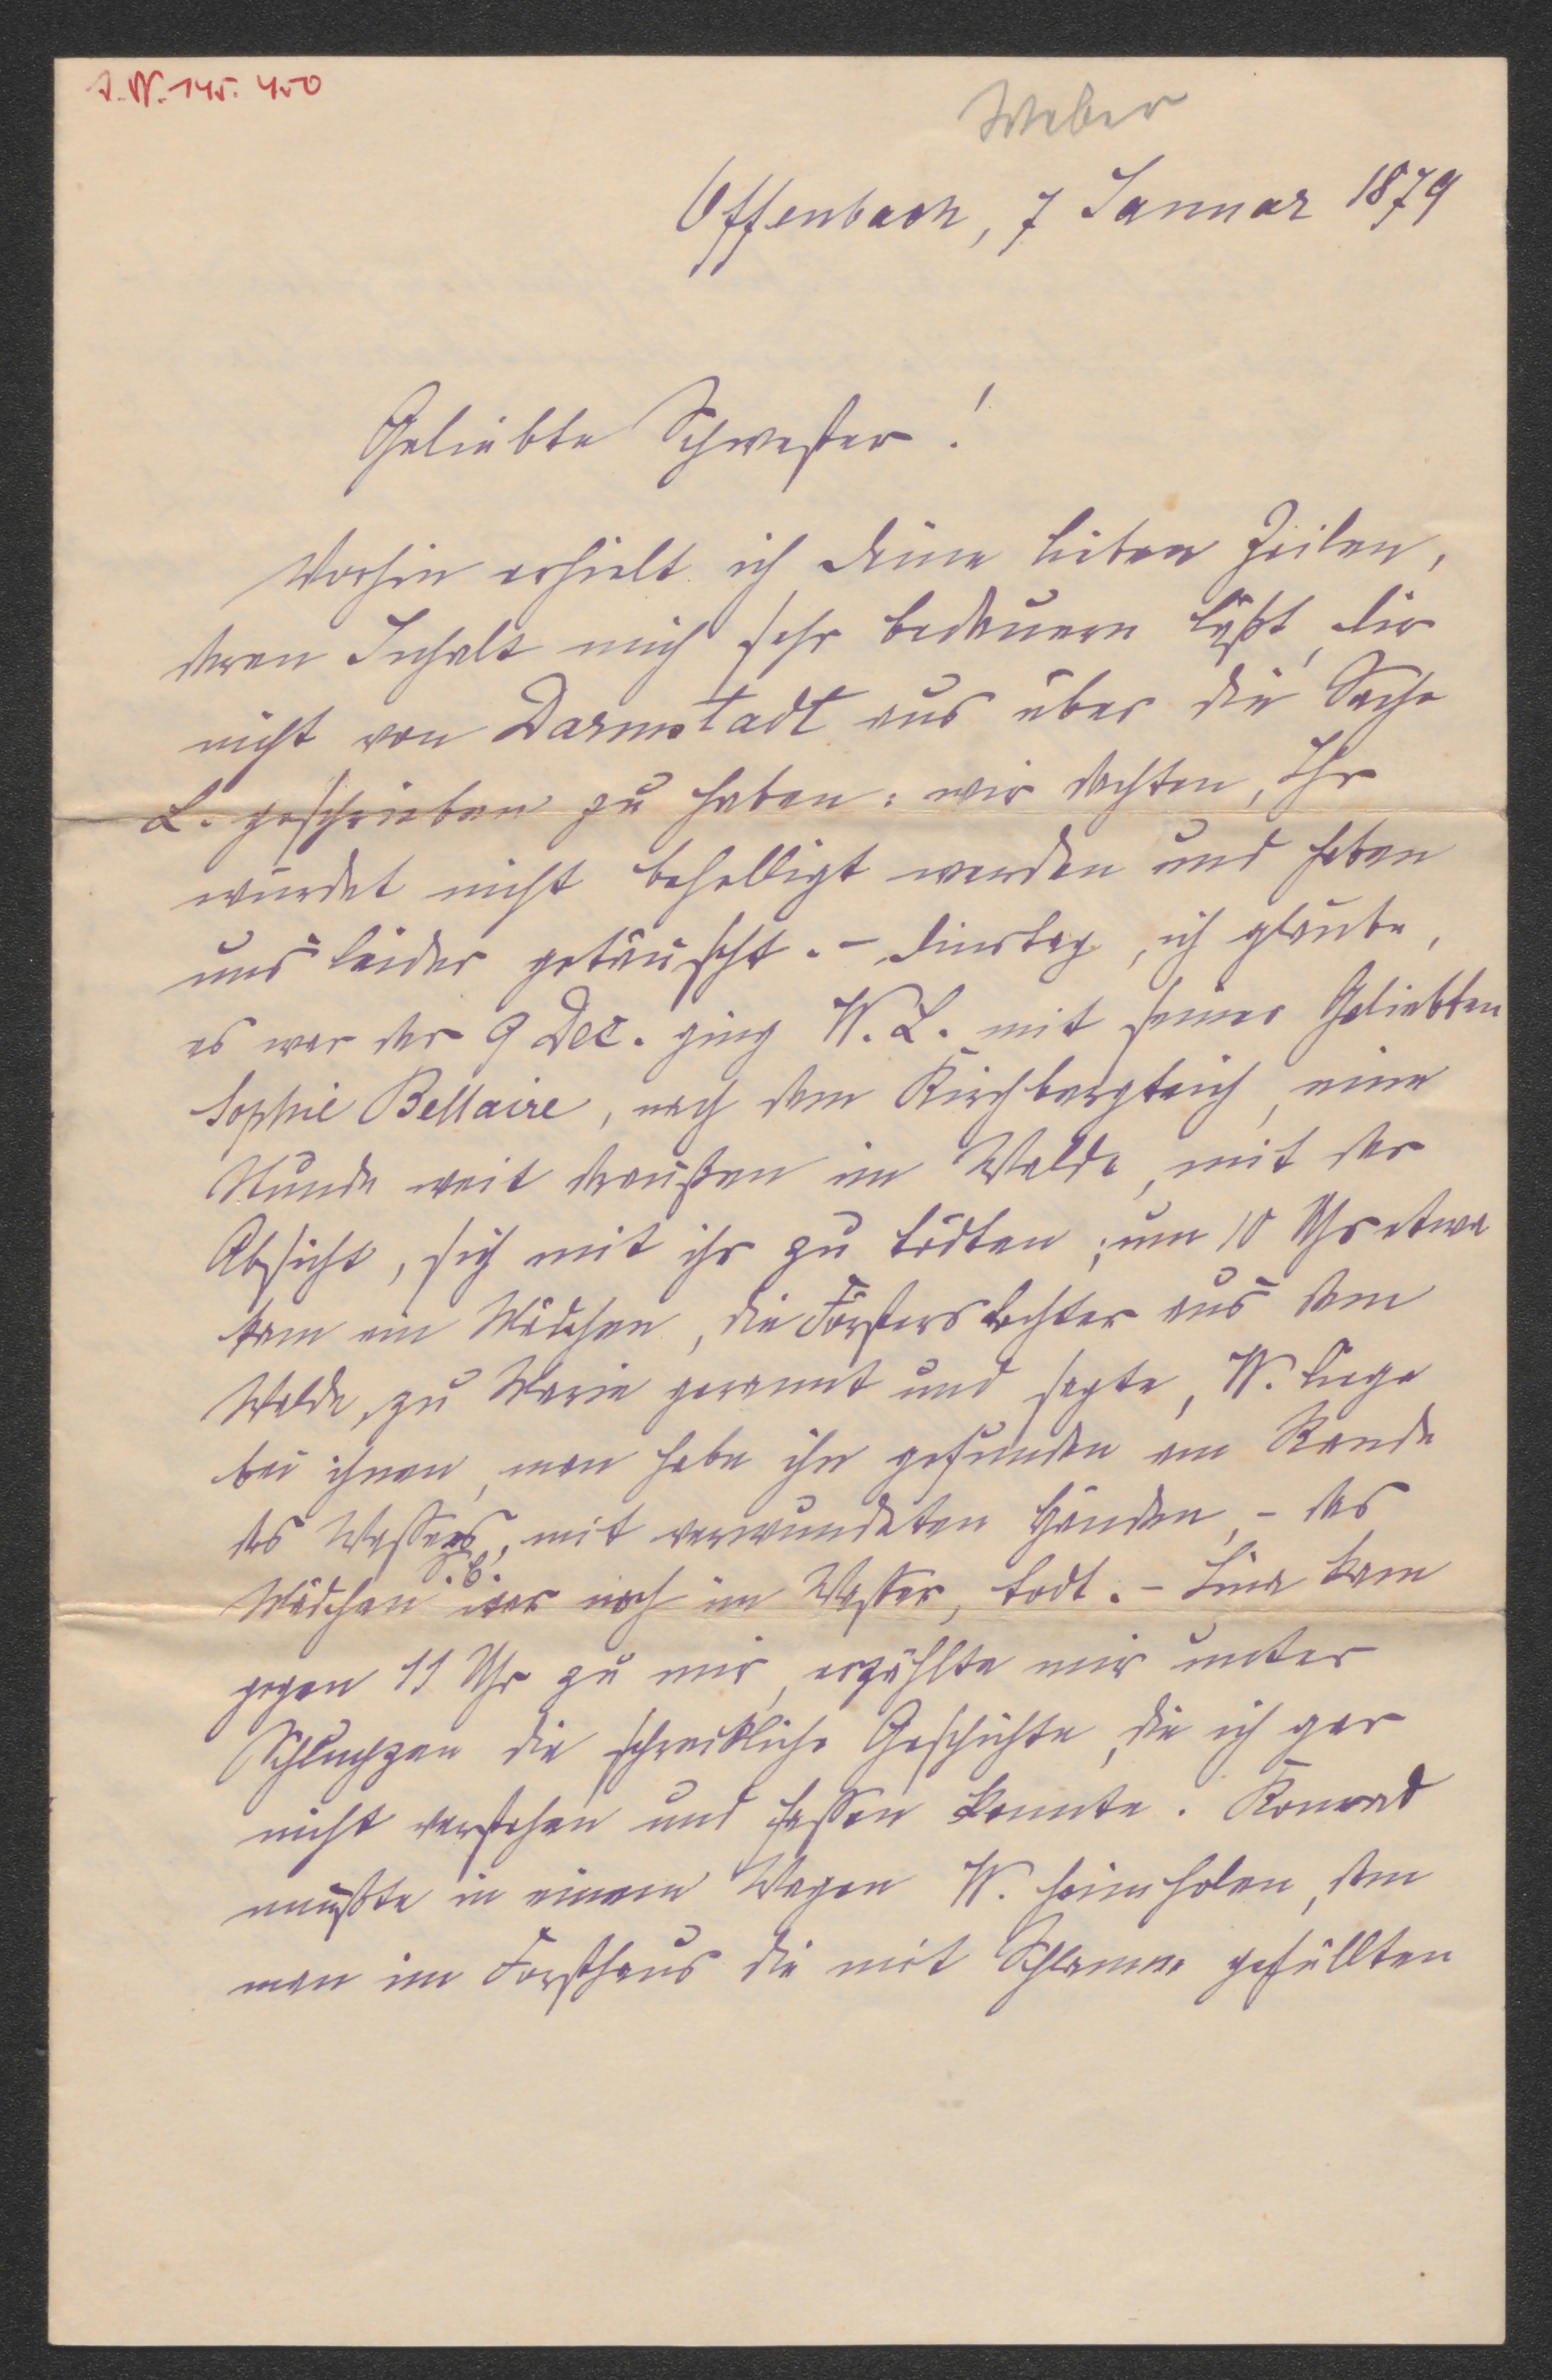 I. N. 145.450
Weber
Offenbach, 7 Januar 1879
Geliebte Schwester!
Vorhin erhielt ich deine lieben Zeilen,
deren Inhalt mich sehr bedauern läßt, dir
nicht von Darmstadt aus über die Sache
L. geschrieben zu haben: wir dachten, Ihr
würdet nicht behelligt werden und haben
uns leider getäuscht. – Dinstag, ich glaube,
es war der 9 Dec. ging W. L. mit seiner Geliebten
Sophie Bellaire, nach dem Kirchbergteich, eine
Stunde weit draußen im Walde, mit der
Absicht, sich mit ihr zu tödten; um 10 Uhr etwa
kam ein Mädchen, die Försterstochter aus dem
Walde, zu Marie gerannt und sagte, W. liege
bei ihnen, man habe ihn gefunden am Rande
des Wassers, mit verwundeten Händen, – das
S. B.
Mädchen war noch im Wasser, todt. – Lina kam
gegen 11 Uhr zu mir, erzählte mir unter
Schluchzen die schreckliche Geschichte, die ich gar
nicht verstehen und fassen konnte. Konrad
mußte in einem Wagen W. heimholen, dem
man im Forsthaus die mit Schlamm gefüllten